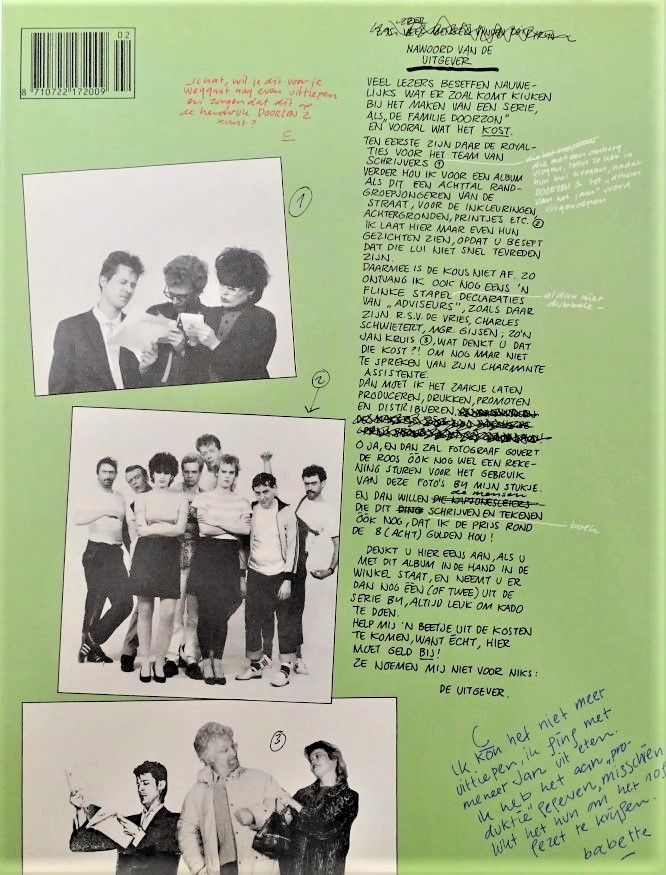 02
8 710722 172009
NAWOORD VAN DE
UITGEVER
schat, wil je dit voor je
weggaat nog even uittiepen
en zorgen dat dit op
de herdruk DOORZON 2
komt?
C
VEEL LEZERS BESEFFEN NAUWE-
LIJKS WAT ER ZOAL KOMT KIJKEN
BIJ HET MAKEN VAN EEN SERIE,
ALS „DE FAMILIE DOORZON"
EN VOORAL WAT HET KOST.
TEN EERSTE ZIJN DAAR DE ROYAL-
TIES VOOR HET TEAM VAN
SCHRIJVERS ①
VERDER HOU IK VOOR EEN ALBUM
ALS DIT EEN ACHTTAL RAND-
GROEPJONGEREN VAN DE
STRAAT, VOOR DE INKLEURINGEN,
ACHTERGRONDEN, PRINTJES ETC. ②
IK LAAT HIER MAAR EVEN HUN
GEZICHTEN ZIEN, OPDAT U BESEFT
DAT DIE LUI NIET SNEL TEVREDEN
ZIJN.
DAARMEE IS DE KOUS NIET AF. ZO
ONTVANG IK OOK NOG EENS 'N
FLINKE STAPEL DECLARATIES
VAN „ADVISEURS", ZOALS DAAR
ZIJN R.S.V. DE VRIES, CHARLES
SCHWIETERT, MGR. GIJSEN; ZO'N
JAN KRUIS ③, WAT DENKT U DAT
DIE KOST?! OM NOG MAAR NIET
TE SPREKEN VAN ZIJN CHARMANTE
ASSISTENTE.
DAN MOET IK HET ZAAKJE LATEN
PRODUCEREN, DRUKKEN, PROMOTEN
EN DISTRIBUEREN.
O JA, EN DAN ZAL FOTOGRAAF GOVERT
DE ROOS ÓÓK NOG WEL EEN REKE-
NING STUREN VOOR HET GEBRUIK
VAN DEZE FOTO'S BIJ MIJN STUKJE.
de mensen
EN DAN WILLEN DIE KAPJONESLEIERS
DIE DIT DING SCHRIJVEN EN TEKENEN
ÓÓK NOG, DAT IK DE PRIJS ROND
DE 8 (ACHT) GULDEN HOU!
DENKT U HIER EENS AAN, ALS U
MET DIT ALBUM IN DE HAND IN DE
WINKEL STAAT, EN NEEMT U ER
DAN NOG ÉÉN (OF TWEE) UIT DE
SERIE BIJ, ALTIJD LEUK OM KADO
TE DOEN.
HELP MIJ 'N BEETJE UIT DE KOSTEN
TE KOMEN, WANT ÉCHT, HIER
MOET GELD BIJ!
ZE NOEMEN MIJ NIET VOOR NIKS:
DE UITGEVER.
al dan niet
dubbele -
boek
①
②
③
C
ik kon het niet meer
uittiepen, ik ging met
meneer Jan uit eten.
ik heb het aan „pro-
duktie" gegeven, misschien
lukt het hun om het nog
gezet te krijgen.
babette